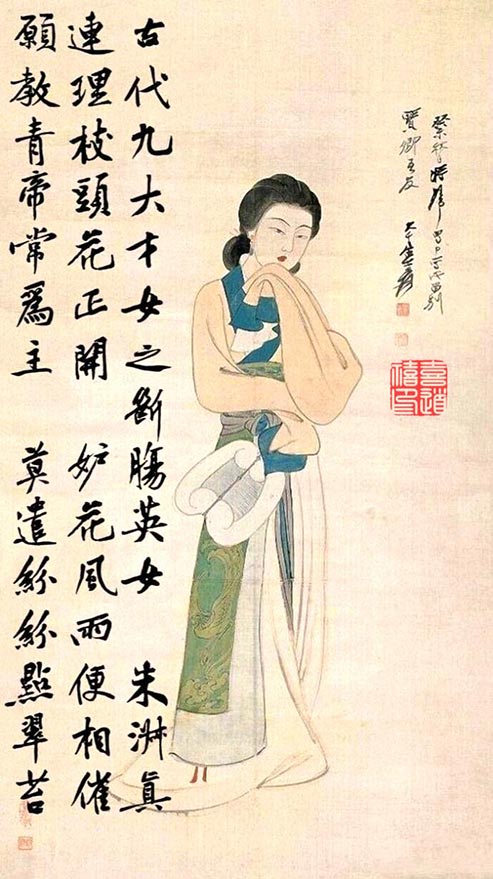 賢卿吾友
大千張爰
喜道
禧印
古代九大才女之斷腸英女 朱淑真
連理枝頭花正開 妒花風雨便相催
願教青帝常爲主 莫遣紛紛點翠苔